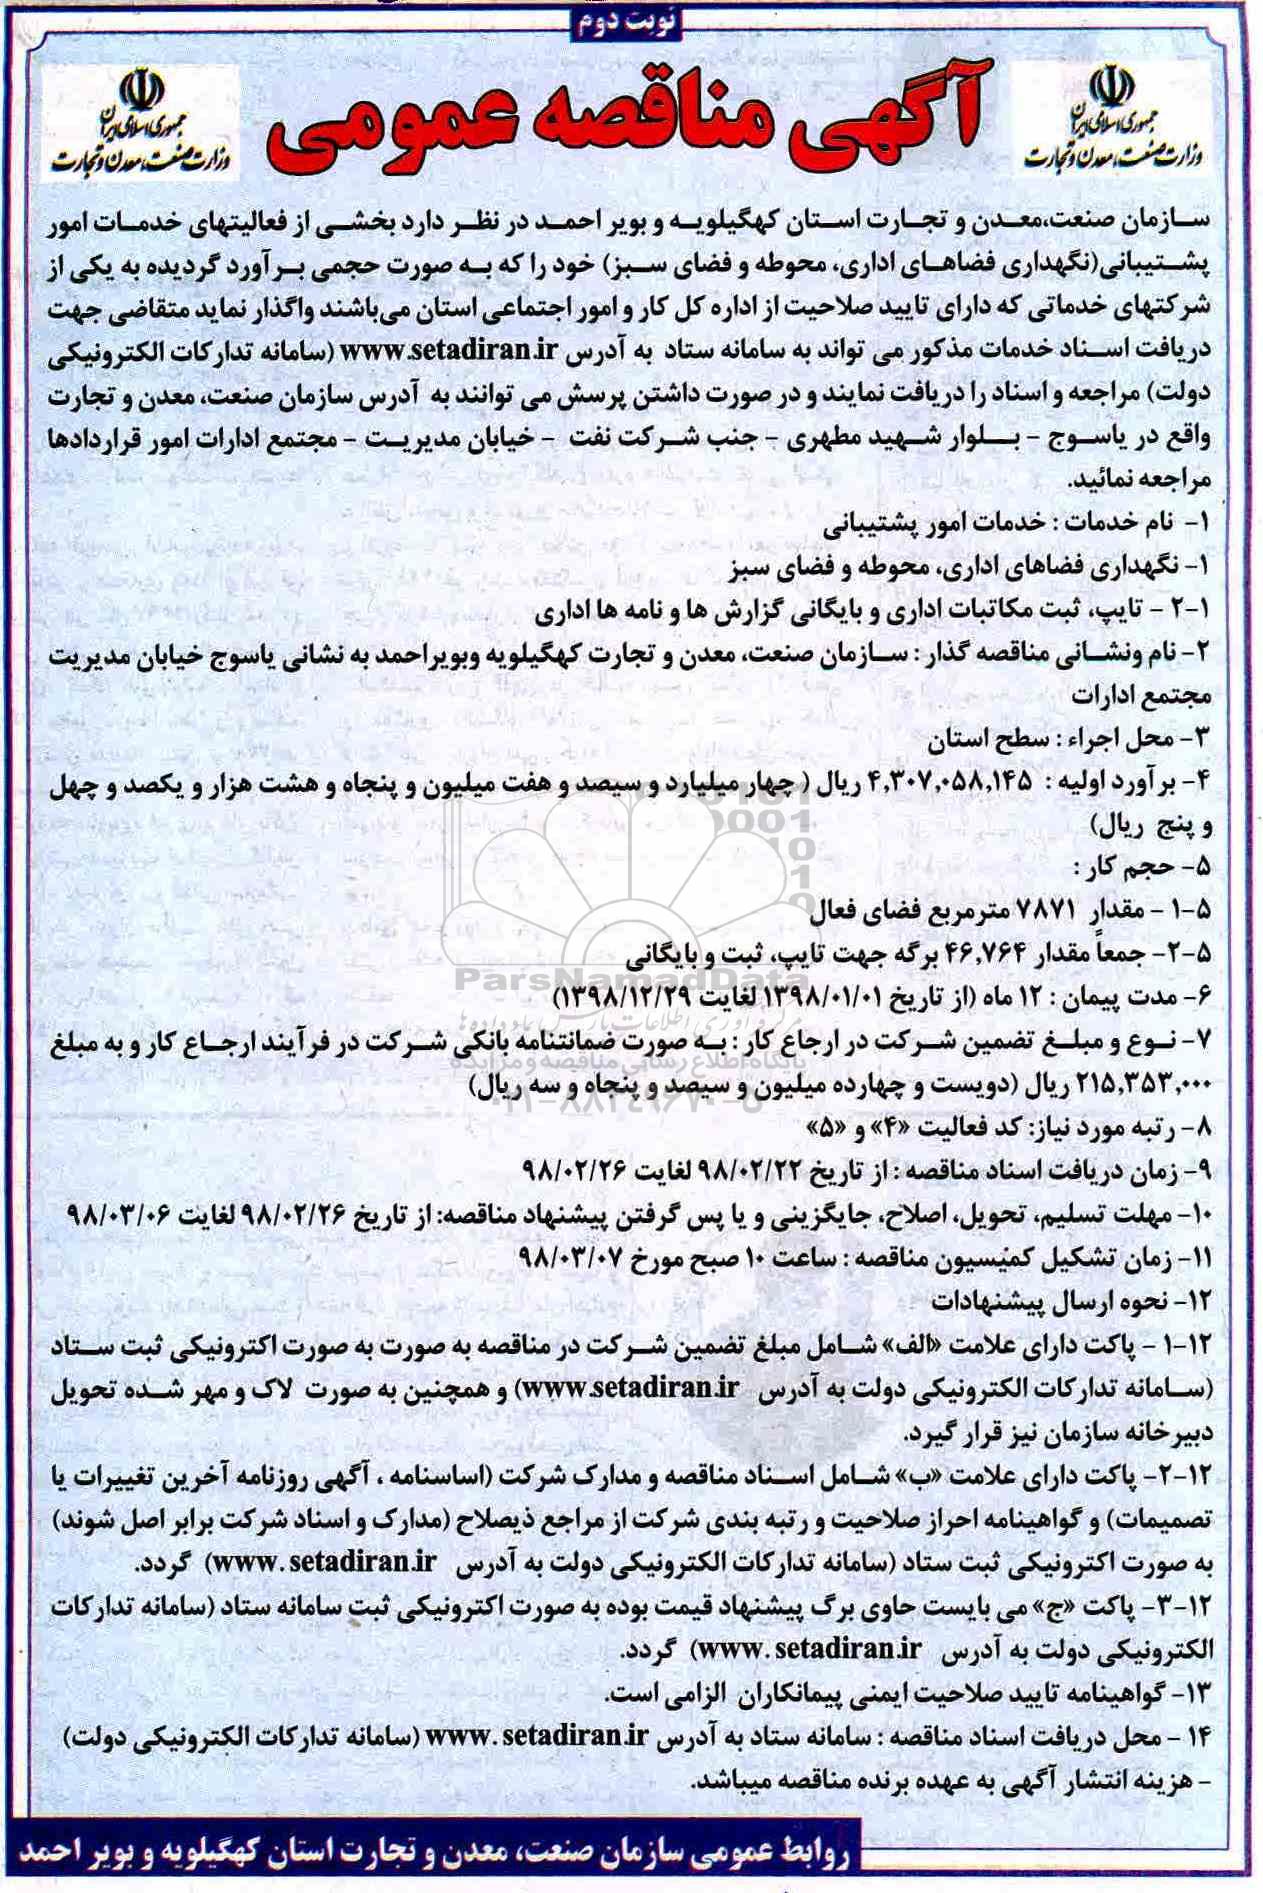 نوبت دوم
آگهی مناقصه عمومی
جمهوری اسلامی ایران
وزارت صنعت، معدن و تجارت
جمهوری اسلامی ایران
وزارت صنعت، معدن و تجارت
سازمان صنعت،معدن و تجارت استان کهگیلویه و بویر احمد در نظر دارد بخشی از فعالیتهای خدمات امور
پشتیبانی(نگهداری فضاهای اداری، محوطه و فضای سبز) خود را که به صورت حجمی برآورد گردیده به یکی از
شرکتهای خدماتی که دارای تایید صلاحیت از اداره کل کار و امور اجتماعی استان می‌باشند واگذار نماید متقاضی جهت
دریافت اسناد خدمات مذکور می تواند به سامانه ستاد به آدرس www.setadiran.ir (سامانه تدارکات الکترونیکی
دولت) مراجعه و اسناد را دریافت نمایند و در صورت داشتن پرسش می توانند به آدرس سازمان صنعت، معدن و تجارت
واقع در یاسوج - بلوار شهید مطهری - جنب شرکت نفت - خیابان مدیریت - مجتمع ادارات امور قراردادها
مراجعه نمائید.
۱- نام خدمات : خدمات امور پشتیبانی
۱- نگهداری فضاهای اداری، محوطه و فضای سبز
۲-۱ - تایپ، ثبت مکاتبات اداری و بایگانی گزارش ها و نامه ها اداری
۲- نام ونشانی مناقصه گذار : سازمان صنعت، معدن و تجارت کهگیلویه وبویراحمد به نشانی یاسوج خیابان مدیریت
مجتمع ادارات
۳- محل اجراء : سطح استان
۴- برآورد اولیه : ۴,۳۰۷,۰۵۸,۱۴۵ ریال ( چهار میلیارد و سیصد و هفت میلیون و پنجاه و هشت هزار و یکصد و چهل
و پنج ریال)
۵- حجم کار :
۱-۵ - مقدار ۷۸۷۱ مترمربع فضای فعال
۲-۵- جمعاً مقدار ۴۶,۷۶۴ برگه جهت تایپ، ثبت و بایگانی
۶- مدت پیمان : ۱۲ ماه (از تاریخ ۱۳۹۸/۰۱/۰۱ لغایت ۱۳۹۸/۱۲/۲۹)
۷- نوع و مبلغ تضمین شرکت در ارجاع کار : به صورت ضمانتنامه بانکی شرکت در فرآیند ارجاع کار و به مبلغ
۲۱۵,۳۵۳,۰۰۰ ریال (دویست و چهارده میلیون و سیصد و پنجاه و سه ریال)
۸- رتبه مورد نیاز: کد فعالیت «۴» و «۵»
۹- زمان دریافت اسناد مناقصه : از تاریخ ۹۸/۰۲/۲۲ لغایت ۹۸/۰۲/۲۶
۱۰- مهلت تسلیم، تحویل، اصلاح، جایگزینی و یا پس گرفتن پیشنهاد مناقصه: از تاریخ ۹۸/۰۲/۲۶ لغایت ۹۸/۰۳/۰۶
۱۱- زمان تشکیل کمیسیون مناقصه : ساعت ۱۰ صبح مورخ ۹۸/۰۳/۰۷
۱۲- نحوه ارسال پیشنهادات
۱-۱۲ - پاکت دارای علامت «الف» شامل مبلغ تضمین شرکت در مناقصه به صورت به صورت اکترونیکی ثبت ستاد
(سامانه تدارکات الکترونیکی دولت به آدرس www.setadiran.ir) و همچنین به صورت لاک و مهر شده تحویل
دبیرخانه سازمان نیز قرار گیرد.
۲-۱۲- پاکت دارای علامت «ب» شامل اسناد مناقصه و مدارک شرکت (اساسنامه ، آگهی روزنامه آخرین تغییرات یا
تصمیمات) و گواهینامه احراز صلاحیت و رتبه بندی شرکت از مراجع ذیصلاح (مدارک و اسناد شرکت برابر اصل شوند)
به صورت اکترونیکی ثبت ستاد (سامانه تدارکات الکترونیکی دولت به آدرس www.setadiran.ir) گردد.
۳-۱۲- پاکت «ج» می بایست حاوی برگ پیشنهاد قیمت بوده به صورت اکترونیکی ثبت سامانه ستاد (سامانه تدارکات
الکترونیکی دولت به آدرس www.setadiran.ir) گردد.
۱۳- گواهینامه تایید صلاحیت ایمنی پیمانکاران الزامی است.
۱۴ - محل دریافت اسناد مناقصه : سامانه ستاد به آدرس www.setadiran.ir (سامانه تدارکات الکترونیکی دولت)
- هزینه انتشار آگهی به عهده برنده مناقصه میباشد.
روابط عمومی سازمان صنعت، معدن و تجارت استان کهگیلویه و بویر احمد
ParsNamadData
پایگاه اطلاع رسانی مناقصه و مزایده
۰۲۱-۸۸۳۴۹۶۷۰-۵